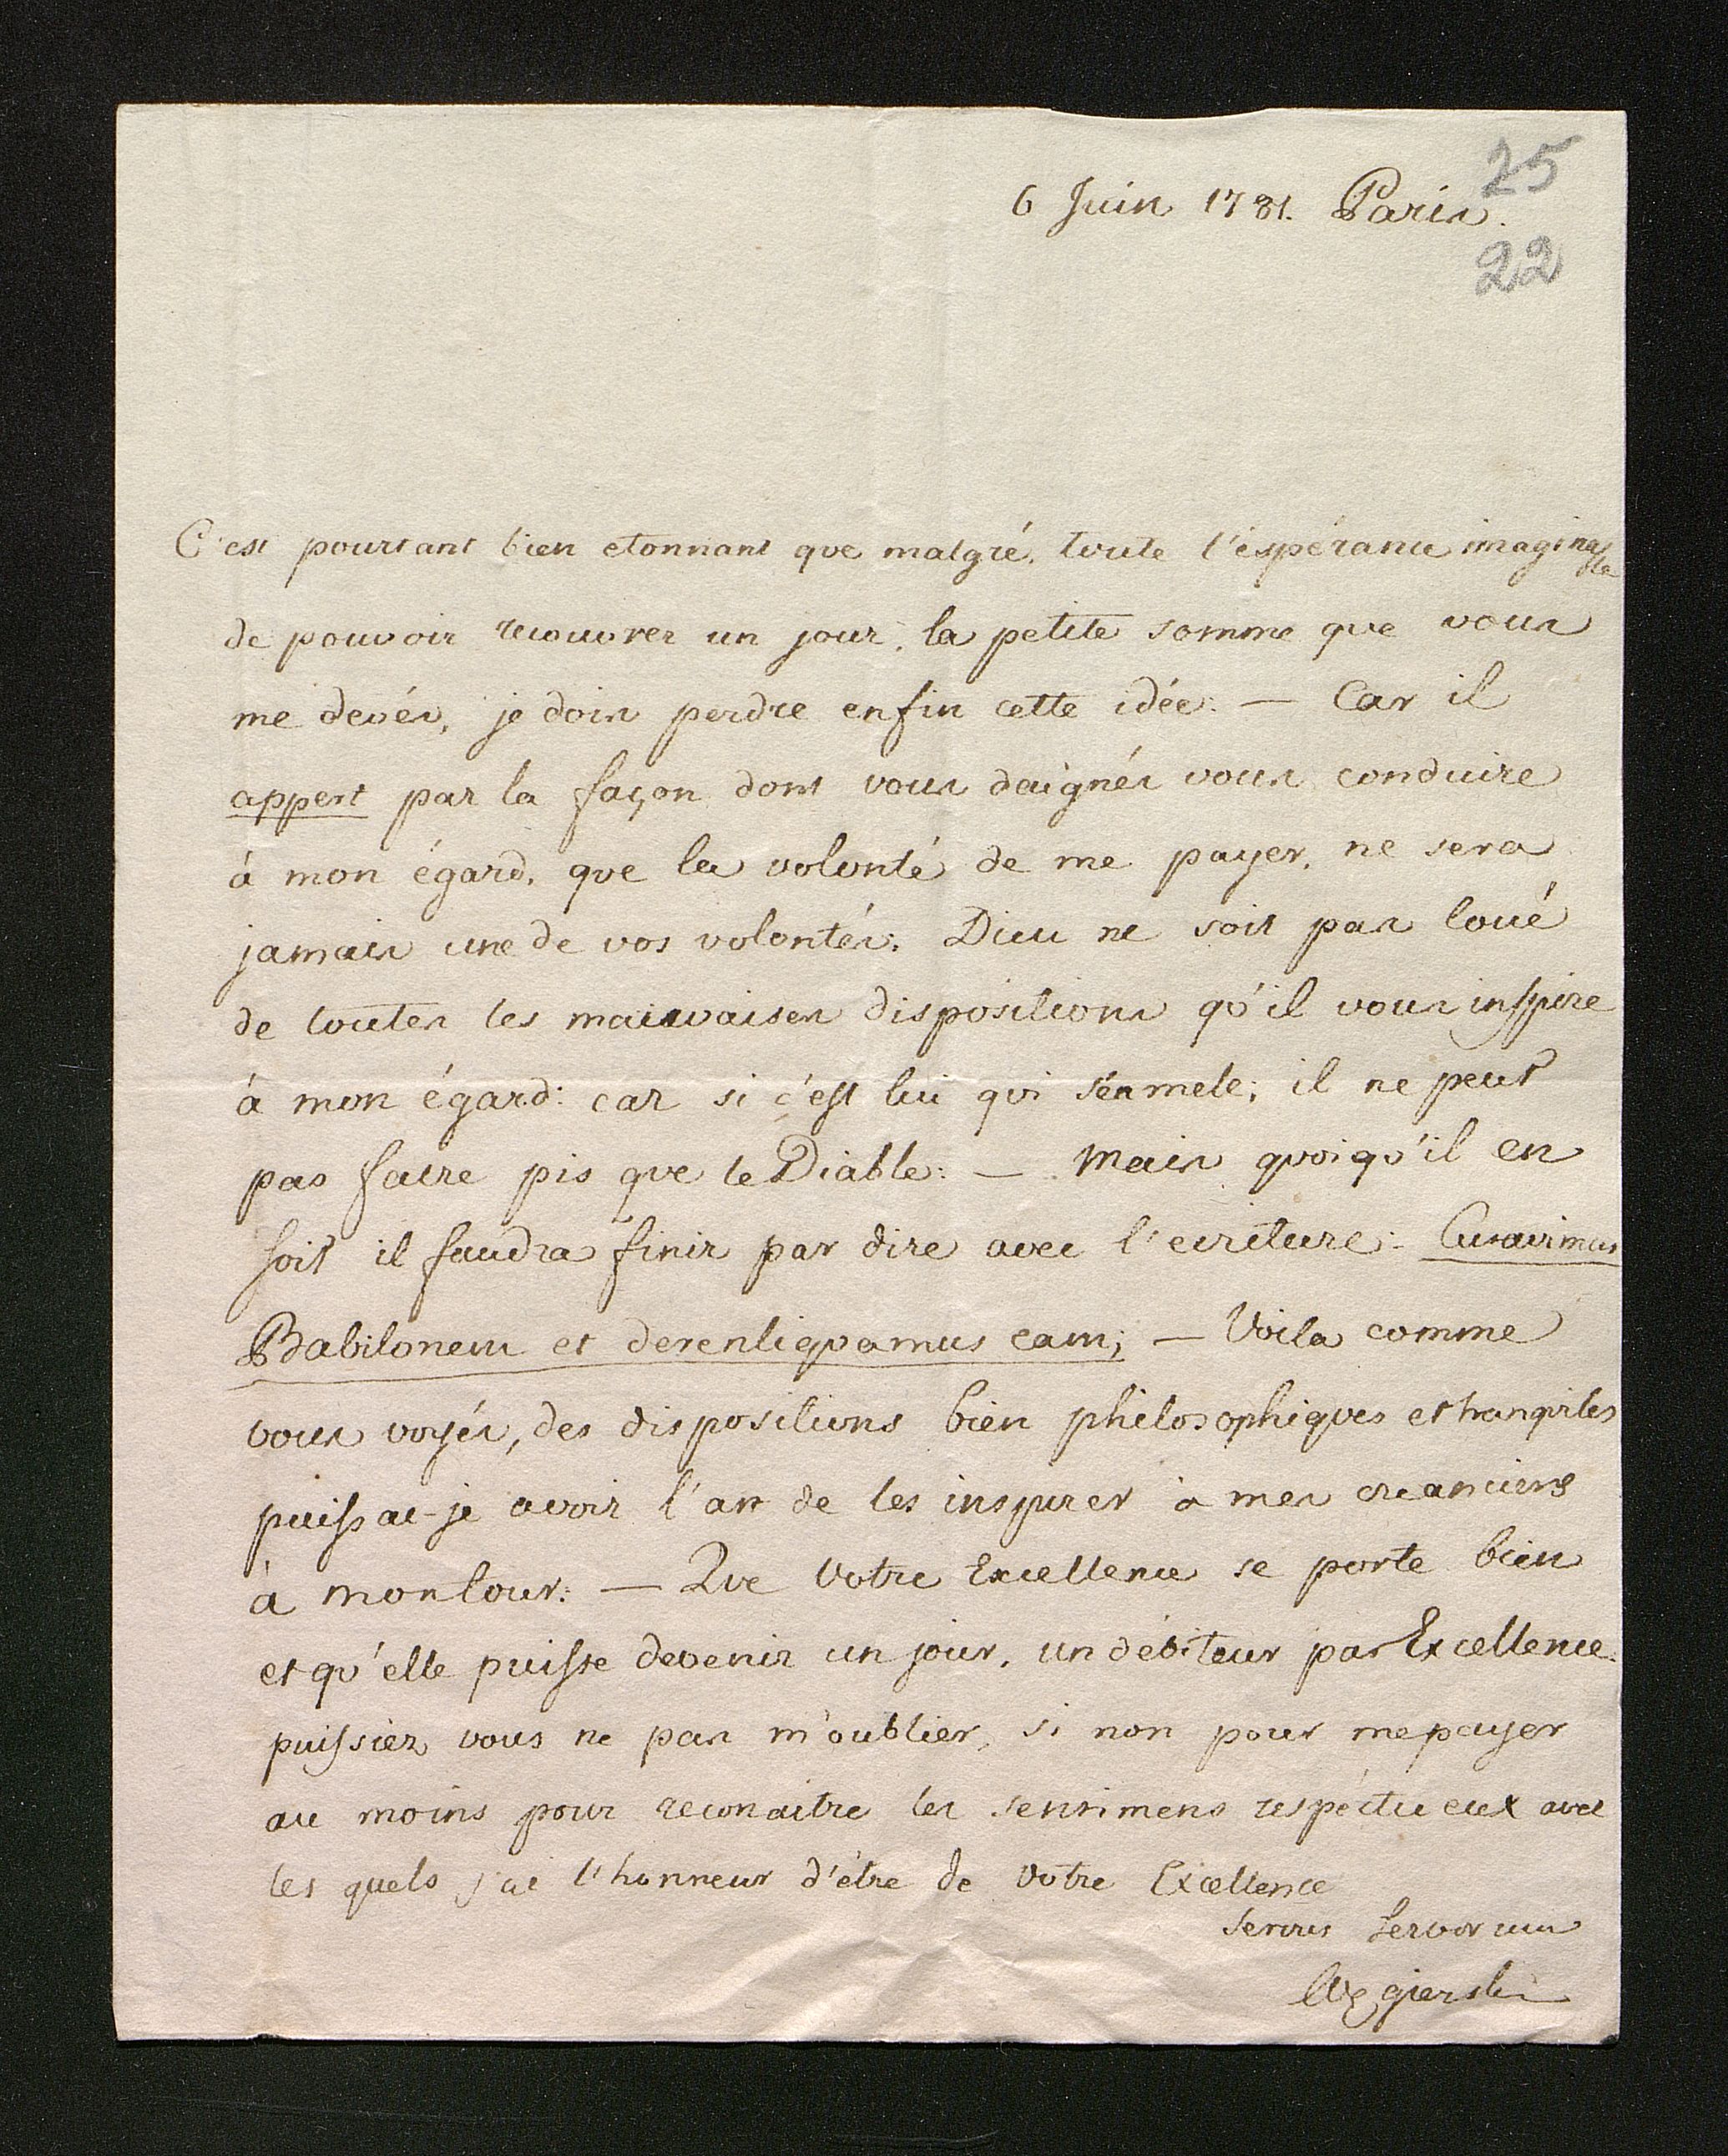 25
6 Juin 1781. Paris.
22
C'est pourtant bien etonnant que malgré, toute l'éspérance imaginable
de pouvoir recouvrer un jour, la petite somme que vous
me devés, je dois perdre enfin cette idée: — Car il
appert par la façon dont vous daignés vous conduire
à mon égard, que la volonté de me payer, ne sera
jamais une de vos volontés: Dieu ne soit pas loué
de toutes les mauvaises dispositions qu'il vous inspire
à mon égard: car si c'est lui qui s'én mele; il ne peut
pas faire pis que le Diable: — Mais quoiqu'il en
soit il faudra finir par dire avec l'ecriture: Curavimus
Babilonem et derenliquamus eam; — Voila comme
vous voyés, des dispositions bien philosophiques et tranquiles
puissai-je avoir l'art de les inspirer à mes creanciers
à montour: — Que Votre Excellence se porte bien
et qu'elle puisse devenir un jour, un débiteur par Excellence.
puissiez vous ne pas m'oublier, si non pour me payer
au moins pour reconaitre les sentimens respéctueux avec
les quels j'ai l'honneur d'étre de Votre Excellence
Servus Servorum
Węgierski